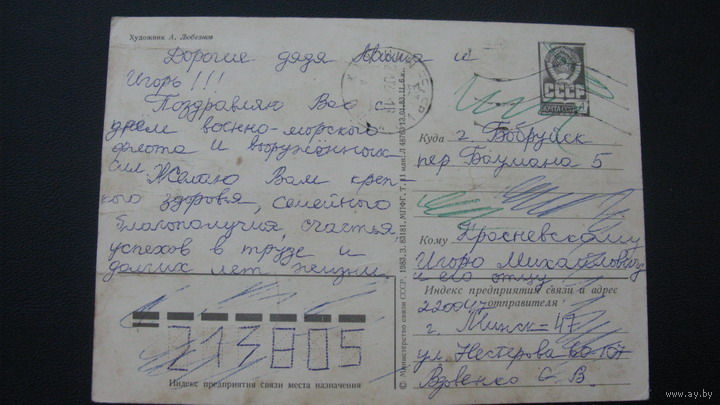 Художник А. Любезнов
Дорогие дядя Миша и
Игорь!!!
Поздравляю Вас с
днем военно-морского
флота и вооружённых
сил. Желаю Вам креп-
кого здоровья, семейного
благополучия, счастья,
успехов в труде и
долгих лет жизни.
213805
Индекс предприятия связи места назначения
© Министерство связи СССР. 1983. З. 83181. МПФГ. Т.
СССР
ПОЧТА СССР
Куда г. Бобруйск
пер Баумана 5
Кому Кросневскому
Игорю Михайловичу
и его отцу
Индекс предприятия связи и адрес
отправителя
220047
г. Минск-47
ул. Нестерова 60-107
Вдовенко С. В.
www.ay.by